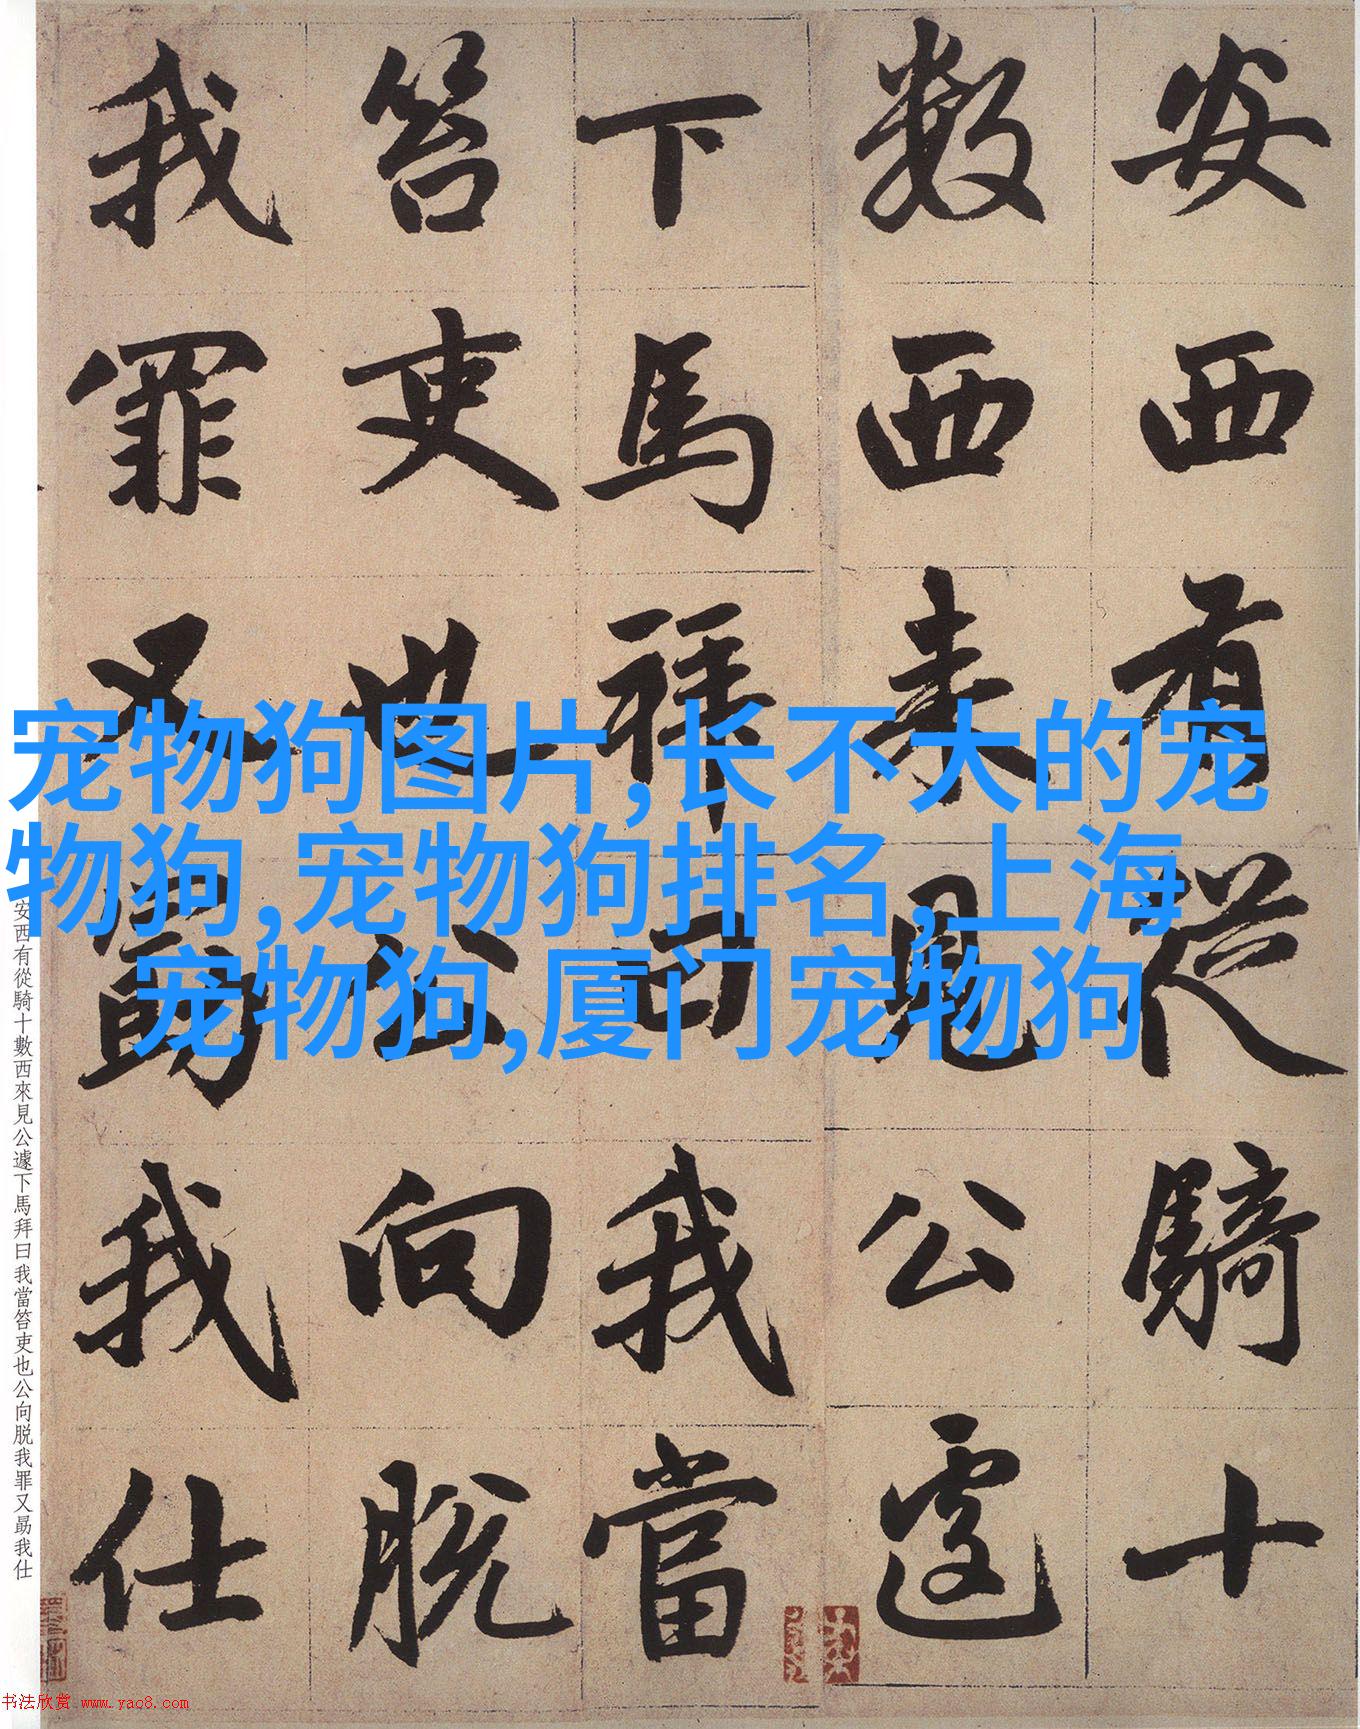 安西有從騎十
數西来見公遽
下馬拜曰我當
笞吏也公向脱
我罪又勗我仕
宠物狗图片,长不大的宠
物狗,宠物狗排名,上海
宠物狗,厦门宠物狗
安西有從騎十數西來見公遽下馬拜曰我當笞吏也公向脱我罪又勗我仕
书法欣赏 www.yac8.com